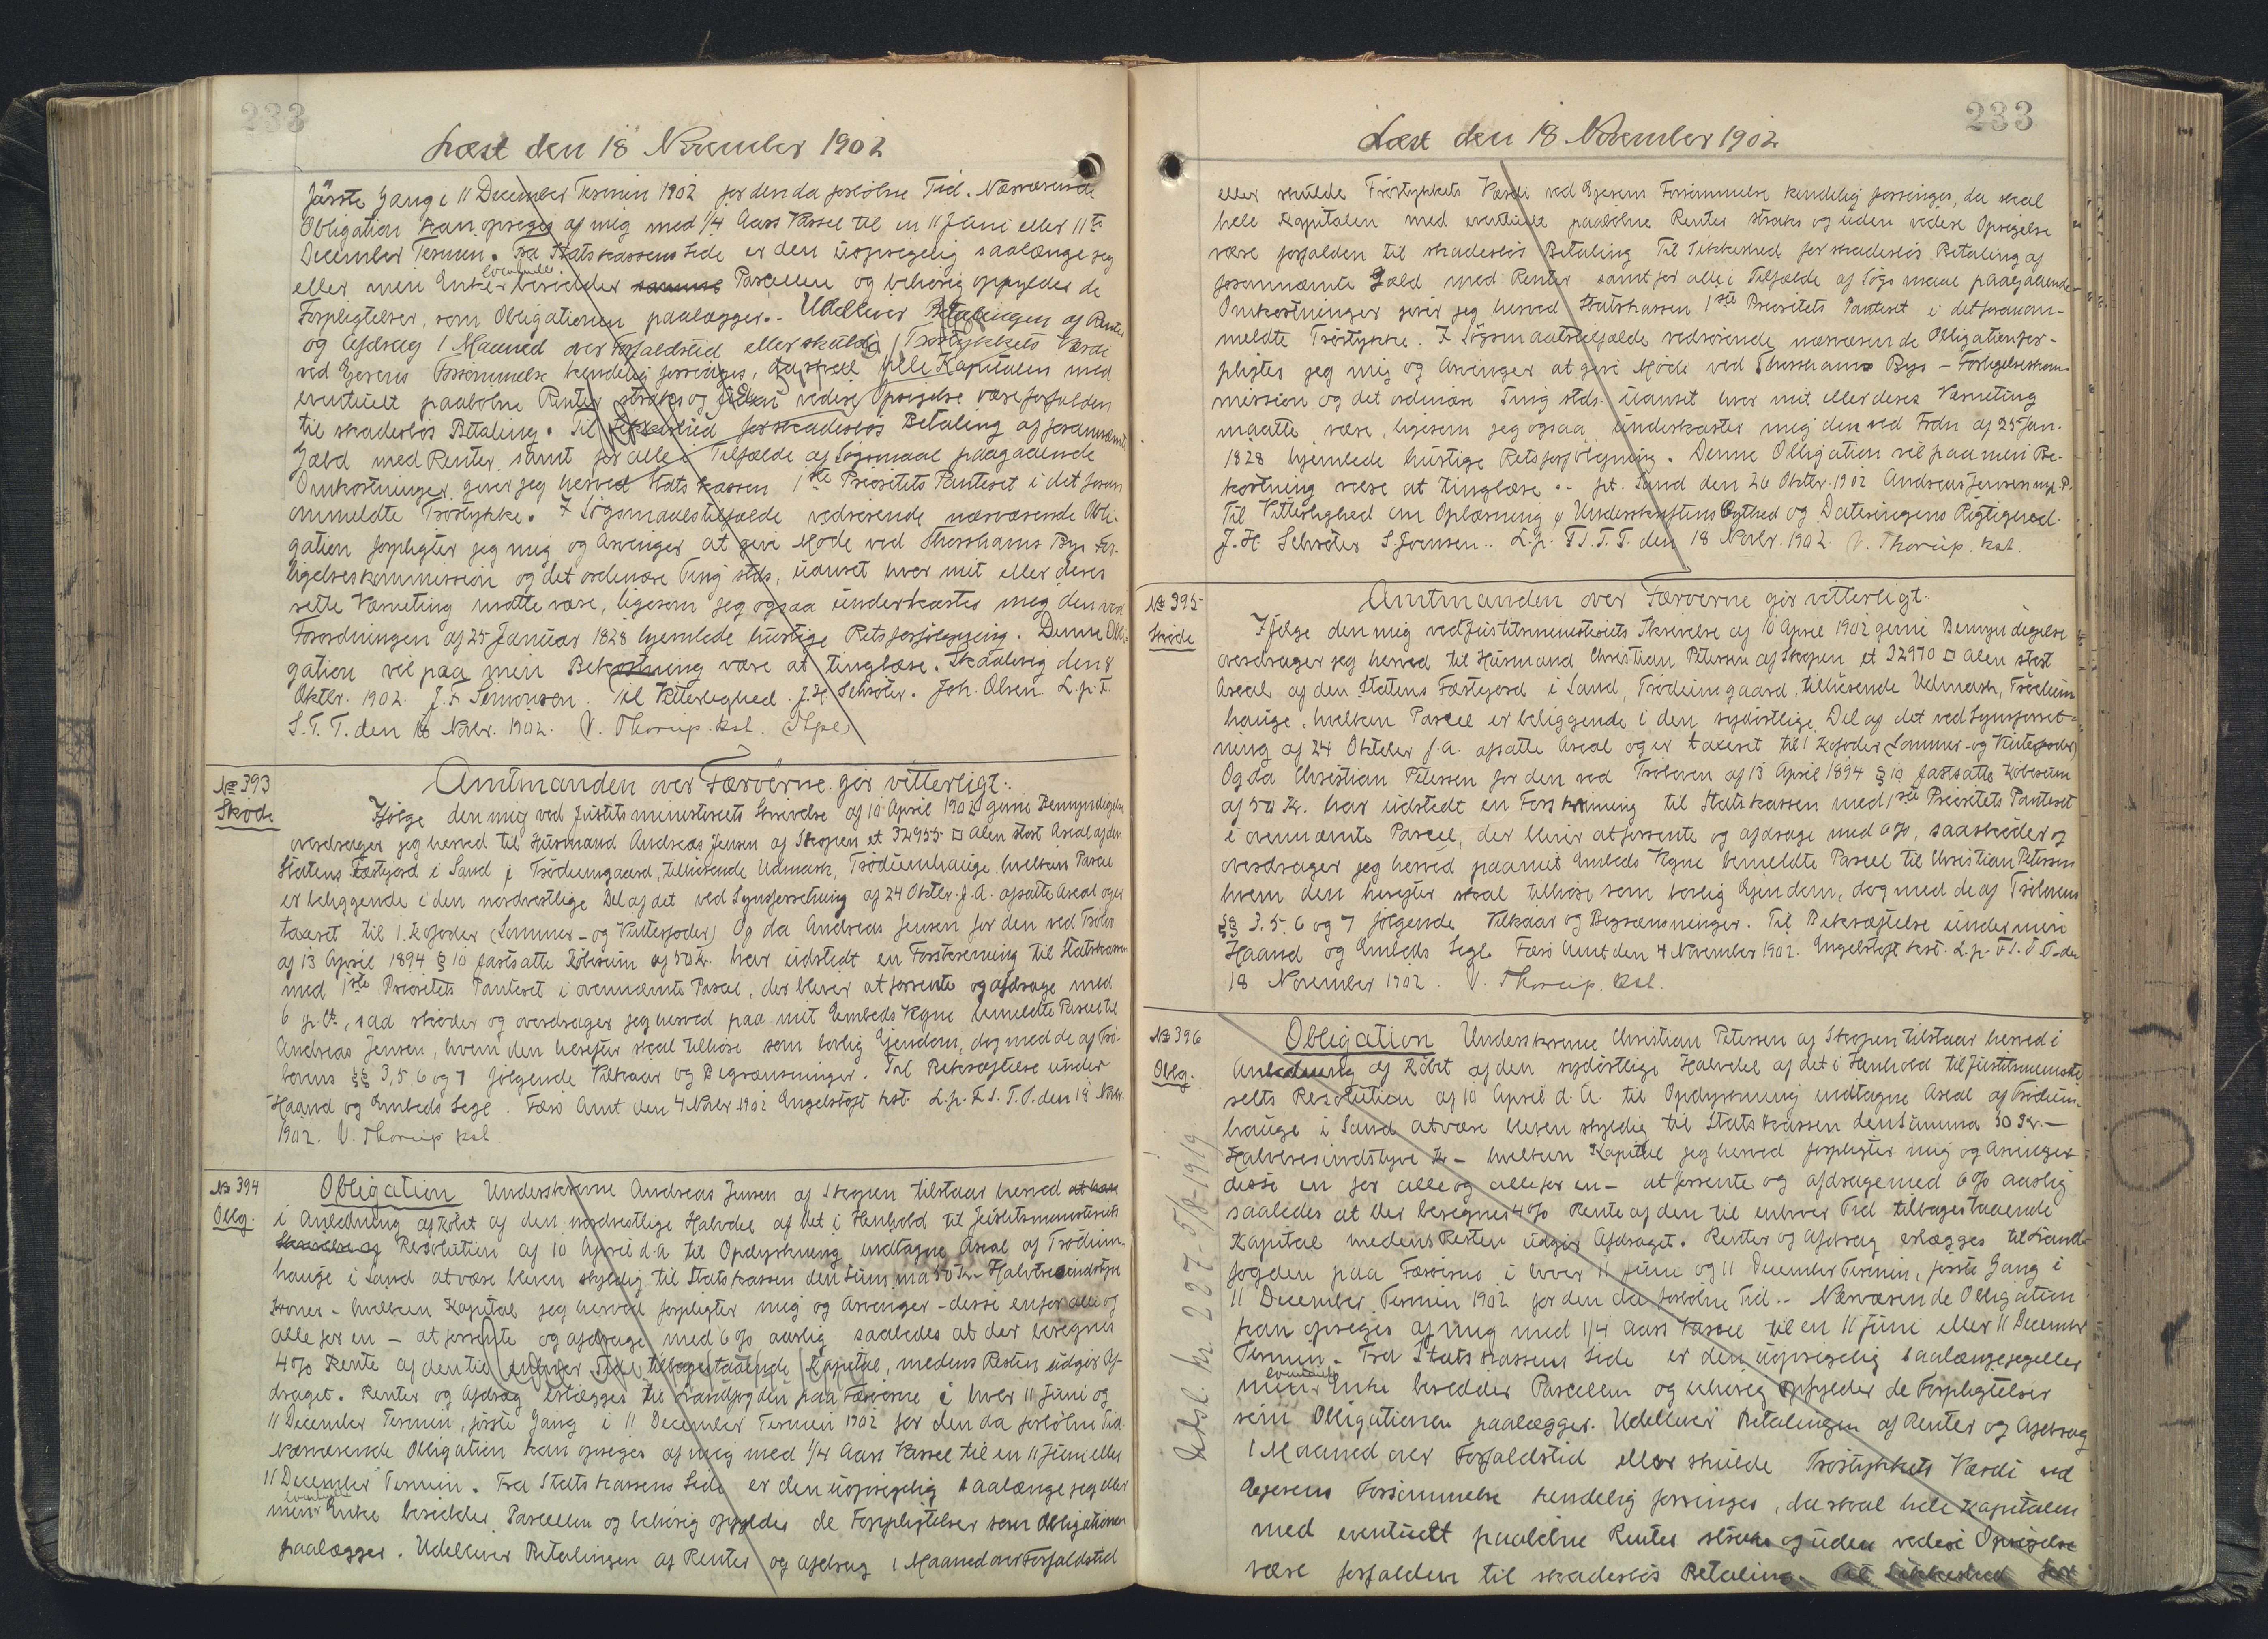 233
Læst den 18 November 1902
første Gang i 11 December Termin 1902 for den da forløbne Tid. Nærværende
Obligation kan opsiges af mig med 1/4 Aars Varsel til en 11 Juni eller 11te
December Termin. Fra Statskassens Side er den uopsigelig saalænge jeg
eller min eventuelle Enke besidder samme Parcellen og behørig opfylder de
Forpligtelser, som Obligationen paalægger. Udebliver Betalingen af Renter
og Afdrag 1 Maaned over Forfaldstid eller skulde Trøstykkets Værdi
ved Ejerens Forsømmelse kendelig forringes, da skal hele Kapitalen med
eventuelt paaløbne Renter straks og uden videre Opsigelse være forfalden
til skadesløs Betaling. Til Sikkerhed for skadesløs Betaling af forannævnte
Gæld med Renter samt for alle i Tilfælde af Søgsmaal paagaaende
Omkostninger giver jeg herved Statskassen 1ste Prioritets Panteret i det foran
ommeldte Trøstykke. I Søgsmaalstilfælde vedrørende nærværende Obli-
gation forpligter jeg mig og Arvinger at give Møde ved Thorshavns Bys For-
ligelseskommission og det ordinære Ting stds, uanset hvor mit eller deres
rette Værneting maatte være, ligesom jeg ogsaa underkaster mig den ved
Forordningen af 25 Januar 1828 hjemlede hurtige Retsforfølgning. Denne Obli-
gation vil paa min Bekostning være at tinglæse. Skaalevig den 8
Oktbr. 1902. J. F. Simonsen. Til Vitterlighed J. H. Schrøter. Joh. Olsen L. p. F.
S. T. T. den 18 Novbr. 1902. V. Thorup. kst.
No 393
Skøde
Amtmanden over Færøerne gør vitterligt:
Ifølge den mig ved Justitsministeriets Skrivelse af 10 April 1902 givne Bemyndigelse
overdrager jeg herved til Husmand Andreas Jensen af Skopen et 32955 □ Alen stort Areal af den
Statens Fæstejord i Sand, Trødumgaard, tilhørende Udmark, Trødumhauge hvilken Parcel
er beliggende i den nordvestlige Del af det ved Synsforretning af 24 Oktbr. f. A. afsatte Areal og er
taxeret til 1 Kofoder (Sommer- og Vinterfoder) Og da Andreas Jensen for den ved Trøloven
af 13 April 1894 § 10 fastsatte Købesum af 50 Kr. har udstedt en Forskrivning til Statskassen
med 1ste Prioritets Panteret i ovennævnte Parcel, der bliver at forrente og afdrage med
6 p. Ct., saa skøder og overdrager jeg herved paa mit Embeds Vegne bemeldte Parcel til
Andreas Jensen, hvem den herefter skal tilhøre som lovlig Ejendom, dog med de af Trø-
lovens §§ 3, 5, 6 og 7 følgende Vilkaar og Begrænsninger. Til Bekræftelse under
Haand og Embeds Segl. Færø Amt den 4 Novbr 1902 Engelstoft kst. L. p. F. S. T. T. den 18 Novbr.
1902. V. Thorup kst
No 394
Oblg.
Obligation Underskrevne Andreas Jensen af Skopen tilstaar herved at have
i Anledning af Købet af den nordvestlige Halvdel af det i Henhold til Justitsministeriets
Skrivelse af Resolution af 10 April d. A. til Opdyrkning indtagne Areal af Trødum-
hauge i Sand at være bleven skyldig til Statskassen den Summa 50 Kr. - Halvtresindstyve
Kroner - hvilken Kapital jeg herved forpligter mig og Arvinger - disse en for alle og
alle for en - at forrente og afdrage med 6 % aarlig saaledes at der beregnes
4 % Rente af den til enhver Tid tilbagestaaende Kapital, medens Resten udgør Af-
draget. Renter og Afdrag erlægges til Landfogden paa Færøerne i hver 11 Juni og
11 December Termin, første Gang i 11 December Termin 1902 for den da forløbne Tid
Nærværende Obligation kan opsiges af mig med 1/4 Aars Varsel til en 11 Juni eller
11 December Termin. Fra Statskassens Side er den uopsigelig saalænge jeg eller
min eventuelle Enke besidder Parcellen og behørig opfylder de Forpligtelser som Obligationen
paalægger. Udebliver Betalingen af Renter og Afdrag 1 Maaned over Forfaldstid
233
Læst den 18 November 1902
eller skulde Trøstykkets Værdi ved Ejerens Forsømmelse kendelig forringes, da skal
hele Kapitalen med eventuelt paaløbne Renter straks og uden videre Opsigelse
være forfalden til skadesløs Betaling Til Sikkerhed for skadesløs Betaling af
forannævnte Gæld med Renter samt for alle i Tilfælde af Søgsmaal paagaaende
Omkostninger giver jeg herved Statskassen 1ste Prioritets Panteret i det foranom-
meldte Trøstykke. I Søgsmaalstilfælde vedrørende nærværende Obligation for-
pligter jeg mig og Arvinger at give Møde ved Thorshavns Bys - Forligelseskom-
mission og det ordinære Ting stds. uanset hvor mit eller deres Værneting
maatte være, ligesom jeg ogsaa underkaster mig den ved Frdn. af 25 Jan.
1828 hjemlede hurtige Retsforfølgning. Denne Obligation vil paa min Be-
kostning være at tinglæse. - pt. Sand den 26 Oktbr. 1902 Andreas Jensen m. f. P.
Til Vitterlighed om Oplæsning og Underskriftens Ægthed og Dateringens Rigtighed.
J. H. Schrøter S. Joensen.. L. p. F. S. T. T. den 18 Novbr. 1902. V. Thorup. kst.
No 395
Skøde
Amtmanden over Færøerne gør vitterligt:
Ifølge den mig ved Justitsministeriets Skrivelse af 10 April 1902 givne Bemyndigelse
overdrager jeg herved til Husmand Christian Petersen af Skopen et 32970 □ Alen stort
Areal af den Statens Fæstejord i Sand, Trødumgaard, tilhørende Udmark, Trødum
hauge, hvilken Parcel er beliggende i den sydøstlige Del af det ved Synsforret-
ning af 24 Oktober f. A. afsatte Areal og er taxeret til 1 Kofoder (Sommer- og Vinterfoder)
Og da Christian Petersen for den ved Trøloven af 13 April 1894 § 10 fastsatte Købesum
af 50 Kr. har udstedt en Forskrivning til Statskassen med 1ste Prioritets Panteret
i ovennævnte Parcel, der bliver at forrente og afdrage med 6 %, saa skøder og
overdrager jeg herved paa mit Embeds Vegne bemeldte Parcel til Christian Petersen
hvem den herefter skal tilhøre som lovlig Ejendom, dog med de af Trølovens
§§ 3, 5, 6 og 7 følgende Vilkaar og Begrænsninger. Til Bekræftelse under min
Haand og Embeds Segl. Færø Amt den 4 November 1902. Engelstoft kst. L. p. F. S. T. T. den
18 November 1902. V. Thorup. kst.
No 396
Oblg.
Obligation Underskrevne Christian Petersen af Skopen tilstaar herved i
Anledning af Købet af den sydøstlige Halvdel af det i Henhold til Justitsministe
riets Resolution af 10 April d. A. til Opdyrkning indtagne Areal af Trødum-
hauge i Sand at være bleven skyldig til Statskassen den Summa 50 Kr. -
Halvtresindstyve Kr - hvilken Kapital jeg herved forpligter mig og Arvinger
disse en for alle og alle for en - at forrente og afdrage med 6 % aarlig
saaledes at der beregnes 4 % Rente af den til enhver Tid tilbagestaaende
Kapital medens Resten udgør Afdraget. Renter og Afdrag erlægges til Land-
fogden paa Færøerne i hver 11 Juni og 11 December Termin, første Gang i
11 December Termin 1902 for den da forløbne Tid. - Nærværende Obligation
kan opsiges af mig med 1/4 Aars Varsel til en 11 Juni eller 11 December
Termin. Fra Statskassens Side er den uopsigelig saalænge jeg eller
min eventuelle Enke besidder Parcellen og behørig opfylder de Forpligtelser
som Obligationen paalægger. Udebliver Betalingen af Renter og Afdrag
1 Maaned over Forfaldstid eller skulde Trøstykkets Værdi ved
Ejerens Forsømmelse kendelig forringes, da skal hele Kapitalen
med eventuelt paaløbne Renter straks og uden videre Opsigelse
være forfalden til skadesløs Betaling. Til Sikkerhed for
Udsl. Nr. 227 - 5/8-1919